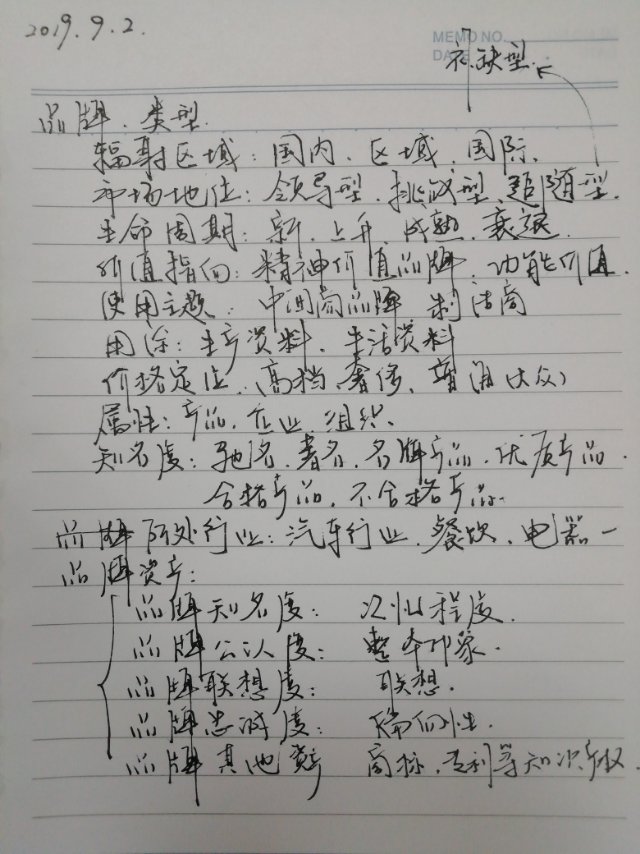 2019.9.2.
MEMO NO.
DATE
补缺型.
品牌.类型.
辐射区域:国内.区域.国际.
市场地位:领导型.挑战型.追随型.
生命周期:新.上升.成熟.衰退.
价值指向:精神价值品牌.功能价值.
使用主题:中间商品牌 制造商
用途:生产资料.生活资料
价格定位.(高档.奢侈.普通大众)
属性:产品.企业.组织.
知名度:驰名.著名.名牌产品.优质产品.
合格产品.不合格产品.
品牌所处行业:汽车行业.餐饮.电器一
品牌资产:
品牌知名度: 记忆程度.
品牌公认度: 整体印象.
品牌联想度: 联想.
品牌忠诚度: 偏向性.
品牌其他资产 商标.专利等知识产权.